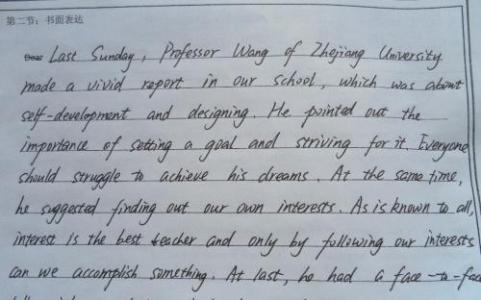 第二节：书面表达
Last Sunday, Professor Wang of Zhejiang University
made a vivid report in our school, which was about
self-development and designing. He pointed out the
importance of setting a goal and striving for it. Everyone
should struggle to achieve his dreams. At the same time,
he suggested finding out our own interests. As is known to all,
interest is the best teacher and only by following our interests
can we accomplish something. At last, he had a face-to-face